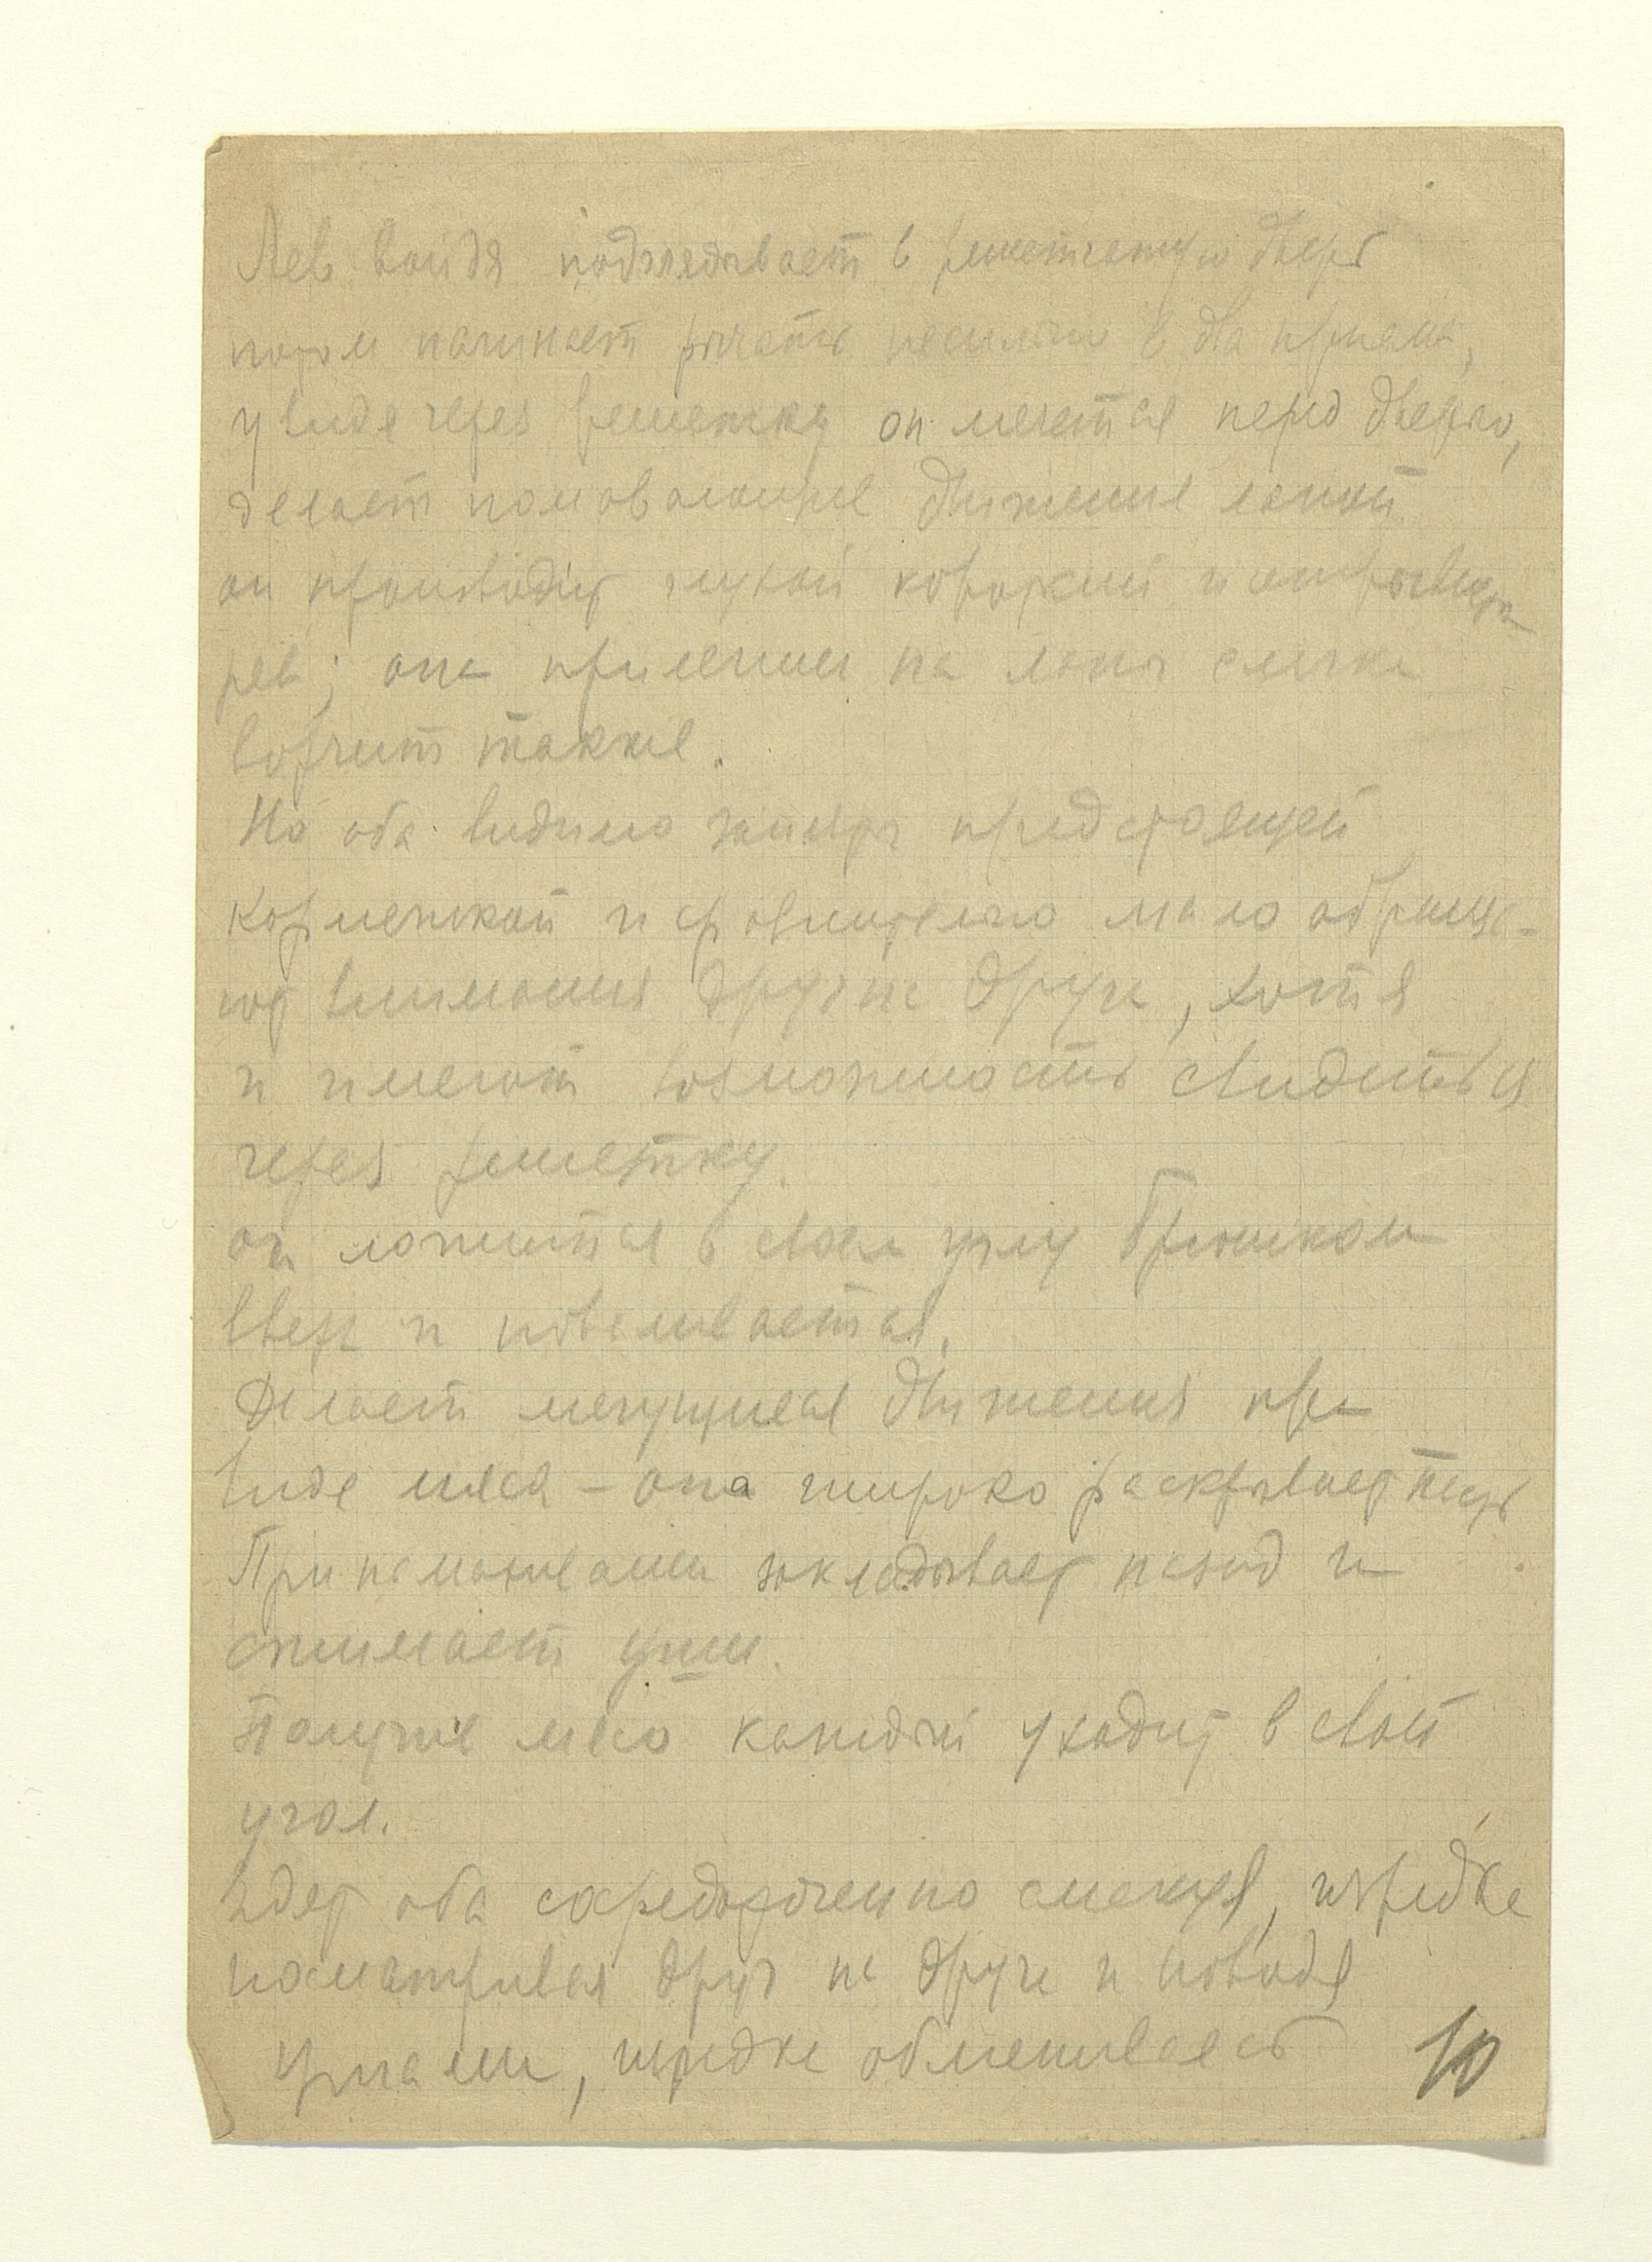 Лев войдя подглядывает в решетчатую дверь
потом начинает рычать несильно в два приема,
увидя через решетку он мечется перед дверью,
делает помовающие движения лапой
он производит глухой короткий и отрывист
рев; она прилегши на лапы слегка
ворчит также.
Но оба видимо заняты предстоящей
кормежкой и сравнительно мало обраща-
ют внимания друг на друга, хотя
и имеют возможность свидеться
через решетку.
он ложится в своем углу брюшком
вверх и поваливается.
Делает мечущиеся движения при
виде мяса – она широко раскрывает пасть
При неможивании закладывает назад и
сжимает уши.
Получив мясо каждый уходит в свой
угол.
Едят оба сосредоточенно смакуя, изредка
посматривая друг на друга и поводя
ушами, изредка обмениваясь
10